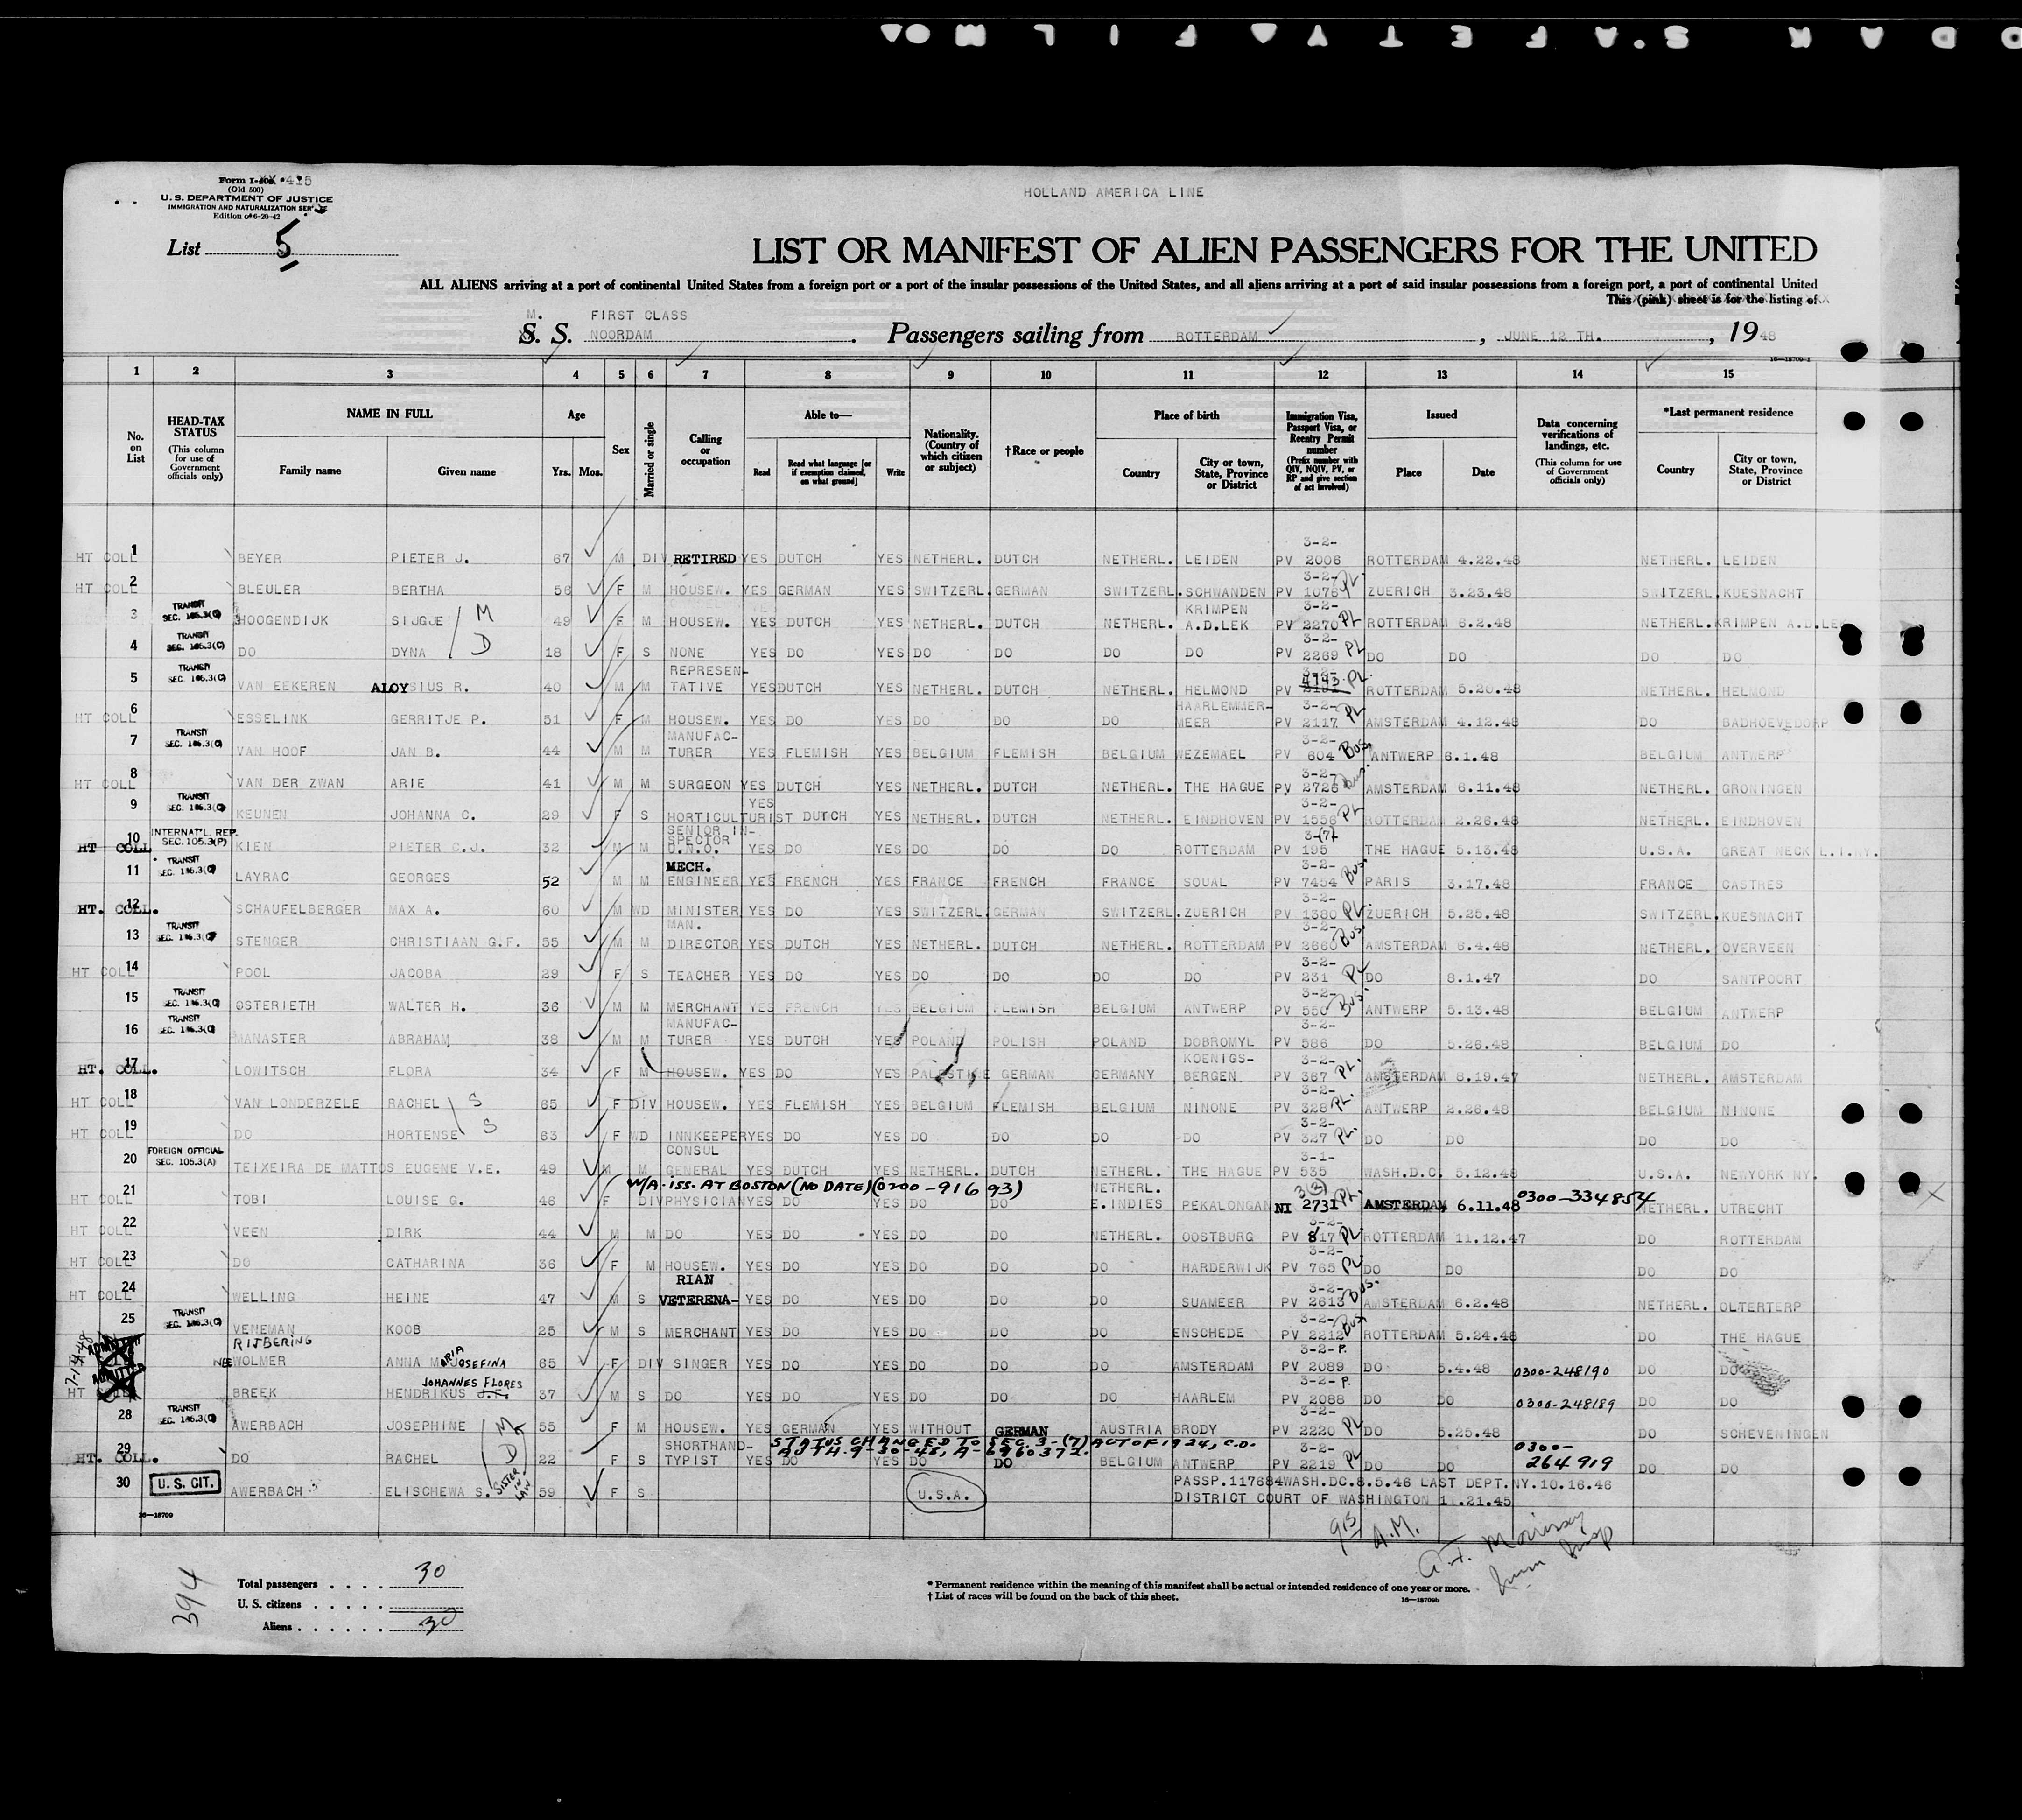 KODAK SAFETY FILM
Form I-415
(Old 500)
U. S. DEPARTMENT OF JUSTICE
IMMIGRATION AND NATURALIZATION SERVICE
Edition of 6-20-42
HOLLAND AMERICA LINE
List 5
LIST OR MANIFEST OF ALIEN PASSENGERS FOR THE UNITED
ALL ALIENS arriving at a port of continental United States from a foreign port or a port of the insular possessions of the United States, and all aliens arriving at a port of said insular possessions from a foreign port, a port of continental United
This (pink) sheet is for the listing of
M. FIRST CLASS
S. S. NOORDAM . Passengers sailing from ROTTERDAM , JUNE 12 TH. , 1948
16—18709-1
1 2 3 4 5 6 7 8 9 10 11 12 13 14 15
No. on List
HEAD-TAX STATUS (This column for use of Government officials only)
NAME IN FULL Family name Given name
Age Yrs. Mos.
Sex
Married or single
Calling or occupation
Able to— Read Read what language [or if exemption claimed, on what ground] Write
Nationality. (Country of which citizen or subject)
†Race or people
Place of birth Country City or town, State, Province or District
Immigration Visa, Passport Visa, or Reentry Permit number (Prefix number with QIV, NQIV, PV, or RP and give section of act involved)
Issued Place Date
Data concerning verifications of landings, etc. (This column for use of Government officials only)
*Last permanent residence Country City or town, State, Province or District
HT COLL 1 BEYER PIETER J. 67 M DIV RETIRED YES DUTCH YES NETHERL. DUTCH NETHERL. LEIDEN 3-2- PV 2006 ROTTERDAM 4.22.48 NETHERL. LEIDEN
HT COLL 2 BLEULER BERTHA 56 F M HOUSEW. YES GERMAN YES SWITZERL. GERMAN SWITZERL. SCHWANDEN 3-2- PV 1076 PL. ZUERICH 3.23.48 SWITZERL. KUESNACHT
3 TRANSIT SEC. 105.3(C) HOOGENDIJK SIJGJE M 49 F M HOUSEW. YES DUTCH YES NETHERL. DUTCH NETHERL. KRIMPEN A.D.LEK 3-2- PV 2270 PL ROTTERDAM 6.2.48 NETHERL. KRIMPEN A.D.LEK
4 TRANSIT SEC. 105.3(C) DO DYNA D 18 F S NONE YES DO YES DO DO DO DO 3-2- PV 2269 PL DO DO DO DO
5 TRANSIT SEC. 105.3(C) VAN EEKEREN ALOYSIUS R. 40 M M REPRESENTATIVE YES DUTCH YES NETHERL. DUTCH NETHERL. HELMOND 3-2- PV 4193 PL. ROTTERDAM 5.20.48 NETHERL. HELMOND
HT COLL 6 ESSELINK GERRITJE P. 51 F M HOUSEW. YES DO YES DO DO DO HAARLEMMER-MEER 3-2- PV 2117 PL AMSTERDAM 4.12.48 DO BADHOEVEDORP
7 TRANSIT SEC. 105.3(C) VAN HOOF JAN B. 44 M M MANUFAC-TURER YES FLEMISH YES BELGIUM FLEMISH BELGIUM WEZEMAEL 3-2- PV 604 Bus. ANTWERP 6.1.48 BELGIUM ANTWERP
HT COLL 8 VAN DER ZWAN ARIE 41 M M SURGEON YES DUTCH YES NETHERL. DUTCH NETHERL. THE HAGUE 3-2- PV 2726 Bus AMSTERDAM 6.11.48 NETHERL. GRONINGEN
9 TRANSIT SEC. 105.3(C) KEUNEN JOHANNA C. 29 F S HORTICULTURIST YES DUTCH YES NETHERL. DUTCH NETHERL. EINDHOVEN 3-2- PV 1556 PL ROTTERDAM 2.26.48 NETHERL. EINDHOVEN
HT COLL 10 INTERNAT'L. REP. SEC. 105.3(F) KIEN PIETER C.J. 32 M M SENIOR IN-SPECTOR U.N.O. YES DO YES DO DO DO ROTTERDAM 3-(7) PV 195 THE HAGUE 5.13.48 U.S.A. GREAT NECK L.I.NY.
11 TRANSIT SEC. 105.3(C) LAYRAC GEORGES 52 M M MECH. ENGINEER YES FRENCH YES FRANCE FRENCH FRANCE SOUAL 3-2- PV 7454 Bus PARIS 3.17.48 FRANCE CASTRES
HT. COLL. 12 SCHAUFELBERGER MAX A. 60 M WD MINISTER YES DO YES SWITZERL. GERMAN SWITZERL. ZUERICH 3-2- PV 1380 PL. ZUERICH 5.25.48 SWITZERL. KUESNACHT
13 TRANSIT SEC. 105.3(C) STENGER CHRISTIAAN G.F. 55 M M MAN. DIRECTOR YES DUTCH YES NETHERL. DUTCH NETHERL. ROTTERDAM 3-2- PV 2660 Bus. AMSTERDAM 6.4.48 NETHERL. OVERVEEN
HT COLL 14 POOL JACOBA 29 F S TEACHER YES DO YES DO DO DO DO 3-2- PV 231 PL DO 8.1.47 DO SANTPOORT
15 TRANSIT SEC. 105.3(C) OSTERIETH WALTER H. 36 M M MERCHANT YES FRENCH YES BELGIUM FLEMISH BELGIUM ANTWERP 3-2- PV 550 Bus. ANTWERP 5.13.48 BELGIUM ANTWERP
16 TRANSIT SEC. 105.3(C) MANASTER ABRAHAM 38 M M MANUFAC-TURER YES DUTCH YES POLAND POLISH POLAND DOBROMYL 3-2- PV 586 DO 5.26.48 BELGIUM DO
HT. COLL. 17 LOWITSCH FLORA 34 F M HOUSEW. YES DO YES PALESTINE GERMAN GERMANY KOENIGS-BERGEN 3-2- PV 367 PL. AMSTERDAM 8.19.47 NETHERL. AMSTERDAM
HT COLL 18 VAN LONDERZELE RACHEL S 65 F DIV HOUSEW. YES FLEMISH YES BELGIUM FLEMISH BELGIUM NINONE 3-2- PV 328 PL. ANTWERP 2.26.48 BELGIUM NINONE
HT COLL 19 DO HORTENSE S 63 F WD INNKEEPER YES DO YES DO DO DO DO 3-2- PV 327 PL. DO DO DO DO
20 FOREIGN OFFICIAL SEC. 105.3(A) TEIXEIRA DE MATTOS EUGENE V.E. 49 M M CONSUL GENERAL YES DUTCH YES NETHERL. DUTCH NETHERL. THE HAGUE 3-1- PV 535 WASH.D.C. 5.12.48 U.S.A. NEWYORK NY.
W/A-ISS. AT BOSTON (NO DATE) (0200-91693)
HT COLL 21 TOBI LOUISE G. 46 F DIV PHYSICIAN YES DO YES DO DO NETHERL. E.INDIES PEKALONGAN 3(2) NI 2731 PL. AMSTERDAM 6.11.48 0300-334854 NETHERL. UTRECHT
HT COLL 22 VEEN DIRK 44 M M DO YES DO YES DO DO NETHERL. OOSTBURG 3-2- PV 817 PL ROTTERDAM 11.12.47 DO ROTTERDAM
HT COLL 23 DO CATHARINA 36 F M HOUSEW. YES DO YES DO DO DO HARDERWIJK 3-2- PV 765 PL DO DO DO DO
HT COLL 24 WELLING HEINE 47 M S VETERENA-RIAN YES DO YES DO DO DO SUAMEER 3-2- PV 2613 Bus. AMSTERDAM 6.2.48 NETHERL. OLTERTERP
25 TRANSIT SEC. 105.3(C) VENEMAN KOOB 25 M S MERCHANT YES DO YES DO DO DO ENSCHEDE 3-2- PV 2212 Bus ROTTERDAM 5.24.48 DO THE HAGUE
RIJBERING
NEE WOLMER ANNA MARIA JOSEFINA 65 F DIV SINGER YES DO YES DO DO DO AMSTERDAM 3-2-P. PV 2089 DO 5.4.48 0300-248190 DO DO
HT BREEK HENDRIKUS JOHANNES FLORES 37 M S DO YES DO YES DO DO DO HAARLEM 3-2-P. PV 2088 DO DO 0300-248189 DO DO
28 TRANSIT SEC. 105.3(C) AWERBACH JOSEPHINE M 55 F M HOUSEW. YES GERMAN YES WITHOUT GERMAN AUSTRIA BRODY 3-2- PV 2220 PL DO 5.25.48 DO SCHEVENINGEN
STATUS CHANGED TO SEC. 3-(7) ACT OF 1924, C.O.
AUTH. 9-30-48, A-6960372.
HT. COLL. 29 DO RACHEL D 22 F S SHORTHAND-TYPIST YES DO YES DO DO BELGIUM ANTWERP 3-2- PV 2219 PL DO DO 0300-264919 DO DO
30 U.S. CIT. AWERBACH ELISCHEWA S. SISTER IN LAW 59 F S U.S.A. PASSP.117684 WASH.DC.8.5.46 LAST DEPT.NY.10.16.46
DISTRICT COURT OF WASHINGTON 1.21.45
16—18709
915 A.M.
394
Total passengers . . . . 30
U. S. citizens . . . . .
Aliens . . . . . . 30
* Permanent residence within the meaning of this manifest shall be actual or intended residence of one year or more.
† List of races will be found on the back of this sheet.
16—18709b